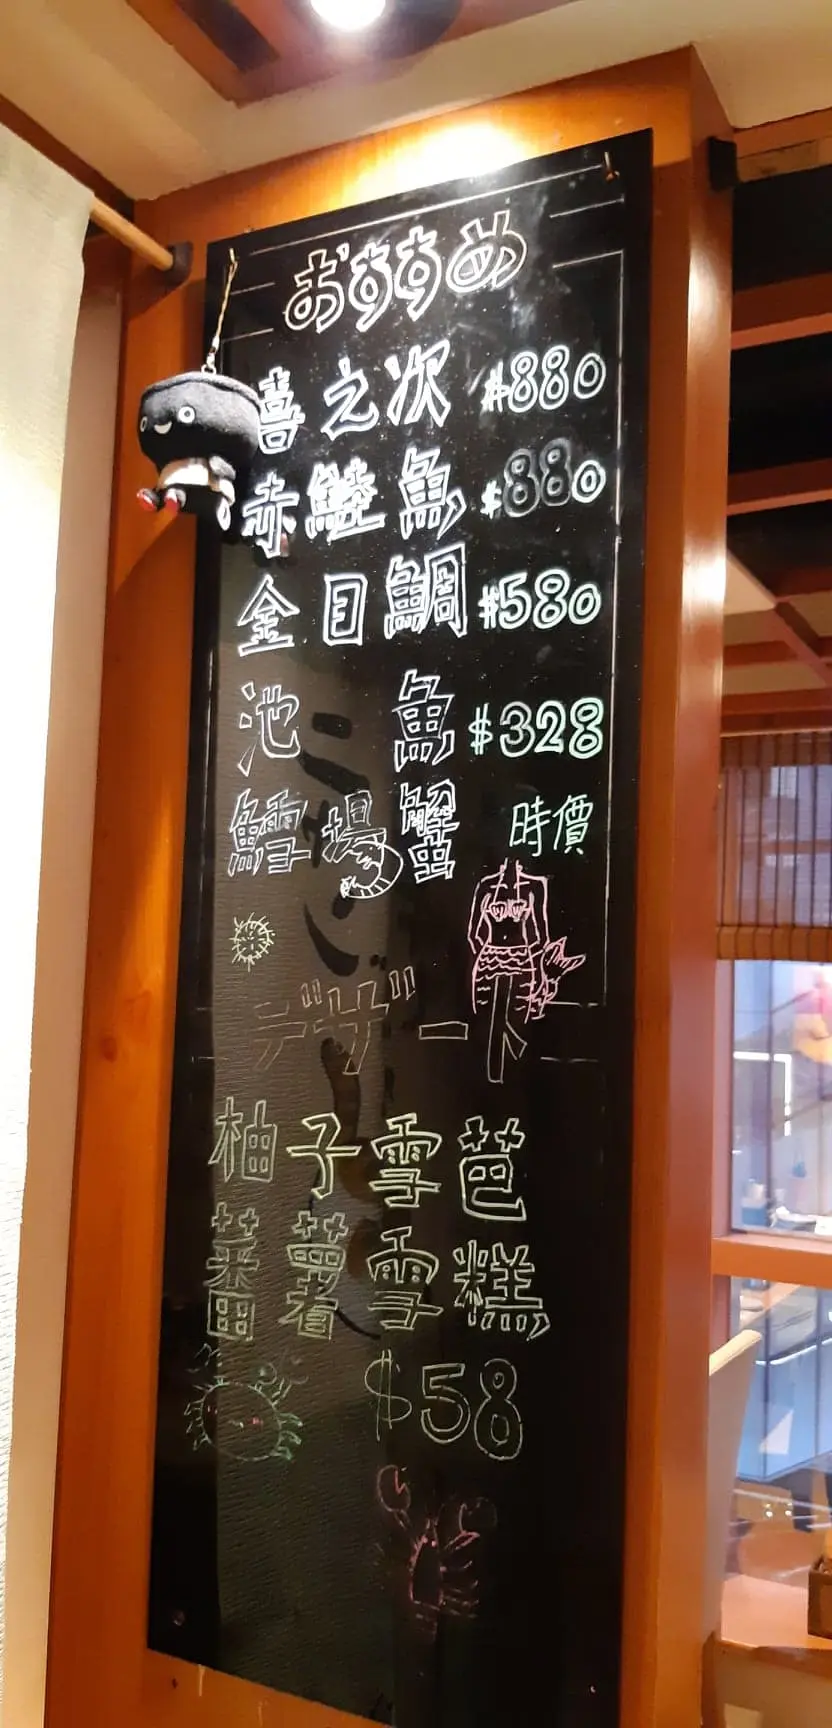 おすすめ
喜之次 $880
赤鯥魚 $880
金目鯛 $580
池魚 $328
鱈場蟹 時價
デザート
柚子雪芭
蕃薯雪糕
$58